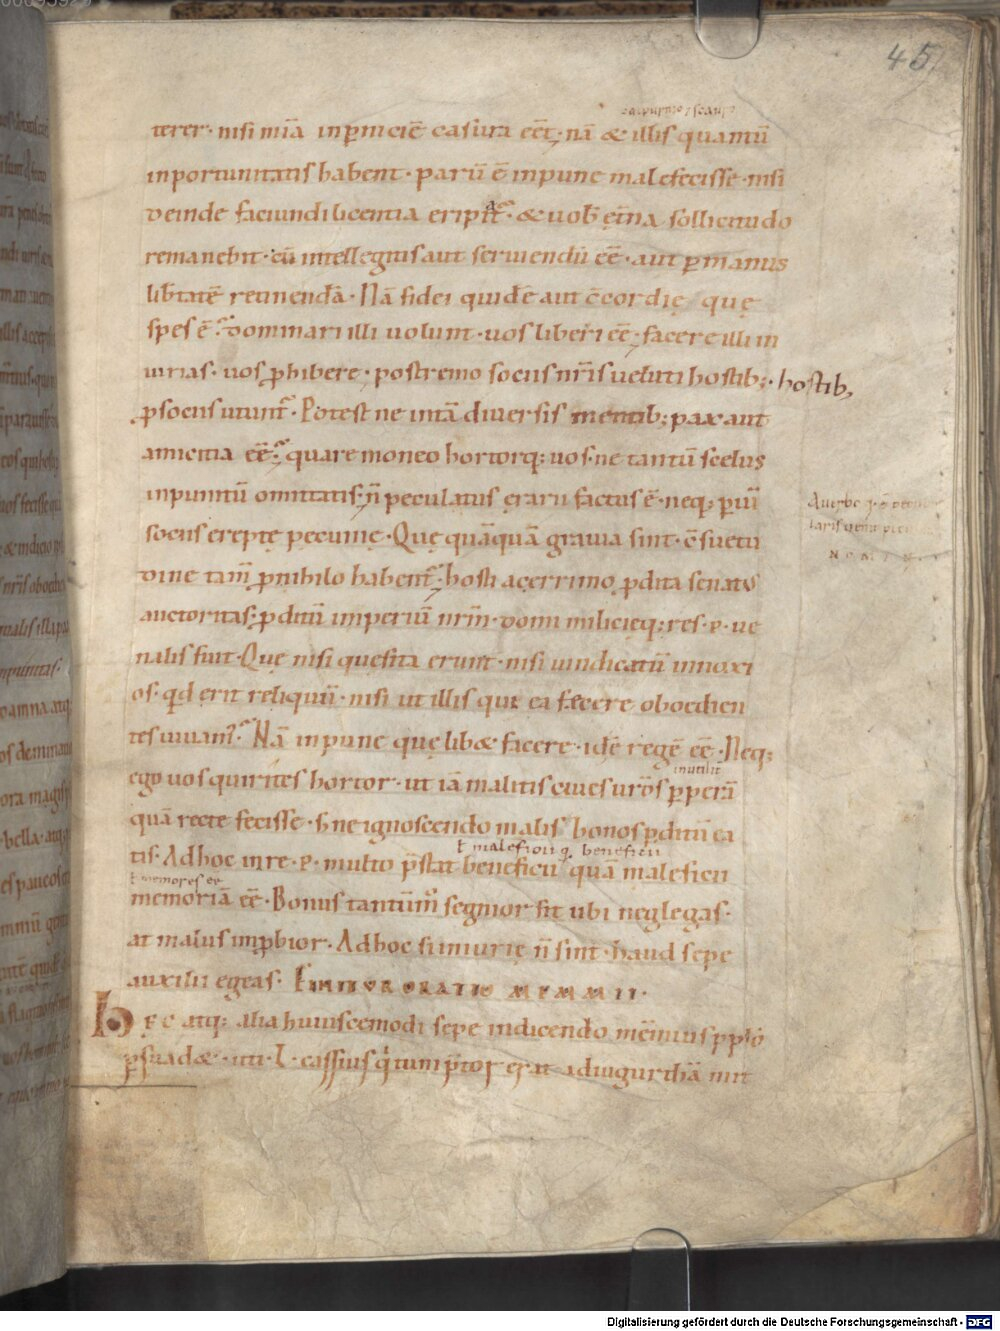 45
calpurnio & scauro
terer · nisi mīa inpniciē casura eēt; nā & illis quantū
inportunitatis habent · parū ē inpune male fecisse · nisi
deinde faciundi licentia eripit̄ · & uob ęt̄na sollicitudo
remanebit · cū intellegitis aut seruiendū eē · aut p manus
lib̄tatē retinendā · Nā fidei quidē aut c̄cordię quę
spes ē dominari illi uolunt · uos liberi eē; facere illi in
iurias · uos phibere · postremo sociis nr̄is ueluti hostib; · hostib;
p sociis utunt̄ · Potest ne in tā diuersis mentib; pax aut
amicitia eē; quare moneo hortorq; uos · ne tantū scelus
inpunitū omittatis; n̄ peculatus ęrarii factus ē · neq; p uiī
sociis ereptę pecunię · Quę quāquā grauia sint · c̄suetu
dine tam̄ p nihilo habent̄; hosti acerrimo pdita senatꝰ
auctoritas; pditū imperiū nr̄m · domi milicięq; res · p · ue
nalis fuit · Quę nisi quesita erunt · nisi uindicatū in noxi
os · qd erit reliquū · nisi ut illis qui ea fecere obœdien
tes uiuam̄ · Nā inpune quę lib& facere · idē regē eē · Neq;
inutilit
ego uos quirites hortor · ut iā malitis ciues ur̄os pperā
quā recte fecisse · s; ne ignoscendo malis bonos pditū ea
ł maleficiiq; beneficii
tis · Ad hoc in re · p · multo p̄stat beneficii quā maleficii
ł memores eē
memoriā eē · Bonus tantūm̊ segnior fit ubi neglegas ·
at malus inpbior · Ad hoc si iniurię n̄ sint · haud sepe
auxilii egeas · FINITUR ORATIO MEMMII ·
hęc atq; alia huiuscemodi sepe indicendo mem̄ius pplo
psuad& · uti · L · cassius qi tum p̄tor erat adiugurthā mit
Digitalisierung gefördert durch die Deutsche Forschungsgemeinschaft · DFG